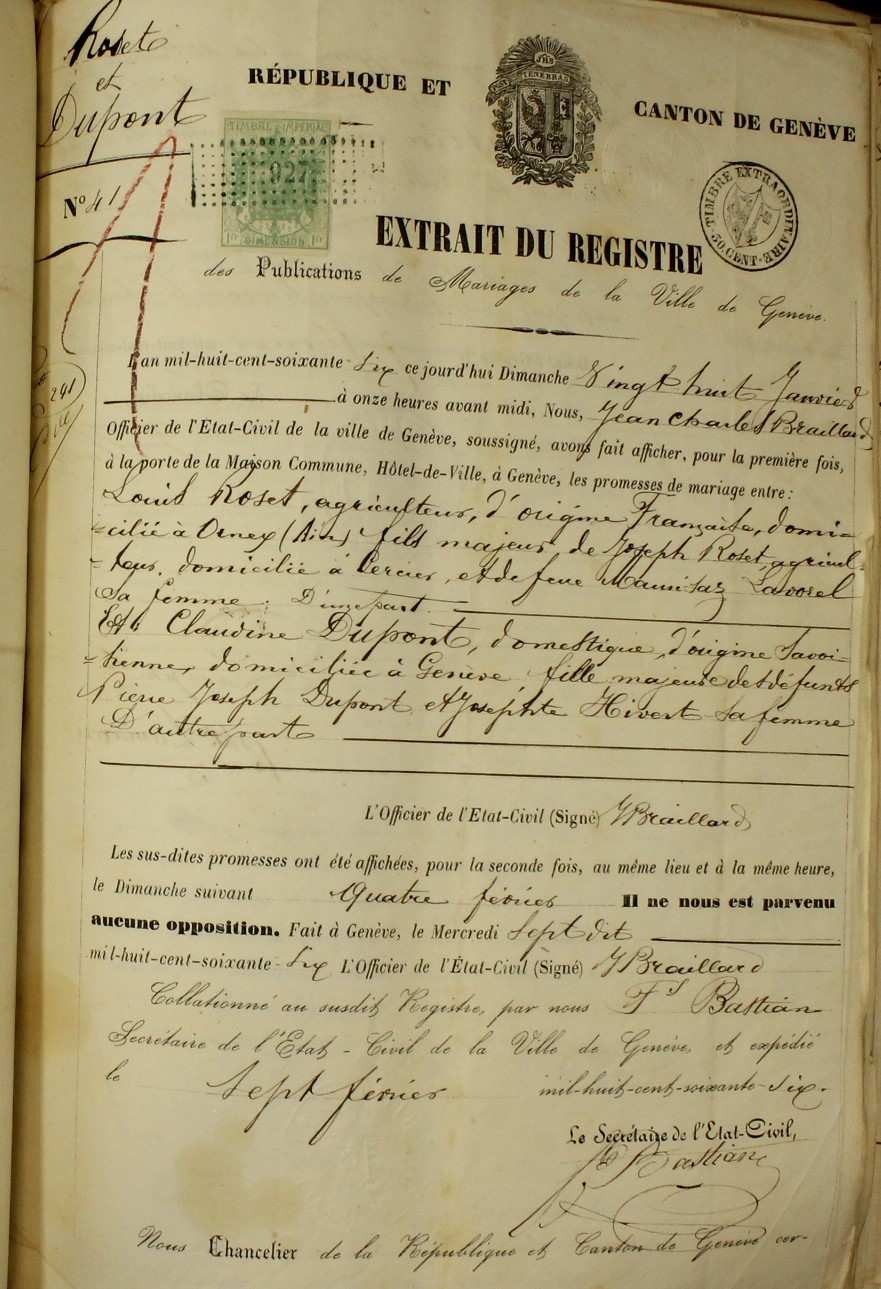 Roset
et
Dupont
N° 41
RÉPUBLIQUE ET
CANTON DE GENÈVE
JHS
POST TENEBRAS
TIMBRE IMPÉRIAL
927
DIMENSION
TIMBRE EXTRAORDINAIRE
30. CENT.
EXTRAIT DU REGISTRE
des Publications de Mariages de la Ville de Genève.
241
L'an mil-huit-cent-soixante-Six ce jourd'hui Dimanche Vingt huit Janvier
à onze heures avant midi, Nous, Jean Charles Braillard
Officier de l'Etat-Civil de la ville de Genève, soussigné, avons fait afficher, pour la première fois,
à la porte de la Maison Commune, Hôtel-de-Ville, à Genève, les promesses de mariage entre:
Louis Roset, agriculteur, d'origine Française, domi-
-cilié à Ornex (Ain) fils majeur de Joseph Roset, agricul-
-teur, domicilié à Cercier, et de feue Lavorel
Sa femme. D'une part.
Et. Claudine Dupont, domestique, d'origine Savoi-
-sienne, domiciliée à Genève fille majeure de défunts
Pierre Joseph Dupont et Josephte Hivert sa femme
D'autre part
L'Officier de l'Etat-Civil (Signé) JBraillard
Les sus-dites promesses ont été affichées, pour la seconde fois, au même lieu et à la même heure,
le Dimanche suivant Quatre février Il ne nous est parvenu
aucune opposition. Fait à Genève, le Mercredi Sept dit
mil-huit-cent-soixante-Six L'Officier de l'État-Civil (Signé) JBraillard
Collationné au susdit Registre, par nous Fs Bastian
Secrétaire de l'Etat-Civil de la Ville de Genève, et expédié
le Sept février mil-huit-cent-soixante-six.
Le Secrétaire de l'Etat-Civil,
Fs Bastian
Nous Chancelier de la République et Canton de Genève cer-